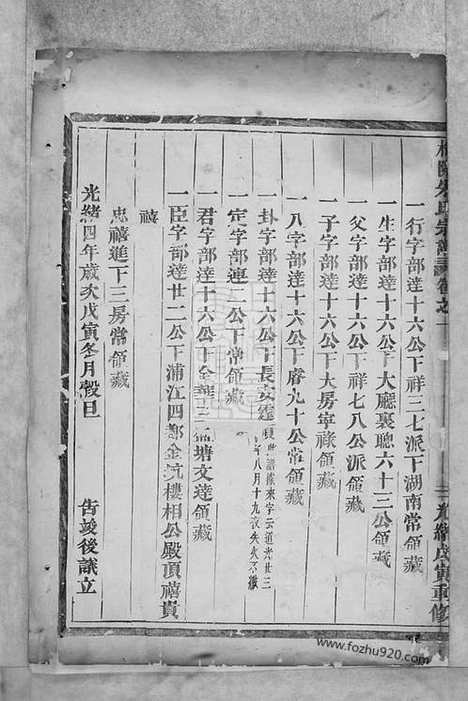 朱氏宗譜 卷之一 光緒戊寅重修
一行字部達十六公下祥三七派下湖南常領藏
一生字部達十六公下大廳裏聰六十三公領藏
一父字部達十六公下祥七八公派領藏
一子字部達十六公下大房寧祿領藏
一八字部達十六公下睿九十公常領藏
一卦字部達十六公下長安
來字云道光廿三
八月十九夜失火不繳
一定字部連二公下常領藏
一君字部達十六公下金華三 塘文達領藏
一臣字部達廿二公下浦江四都金坑樓相公殿頂禧貴
禧
忠禧進下三房常領藏
光緒四年歲次戊寅冬月穀旦 告竣後議立
www.fozhu920.com